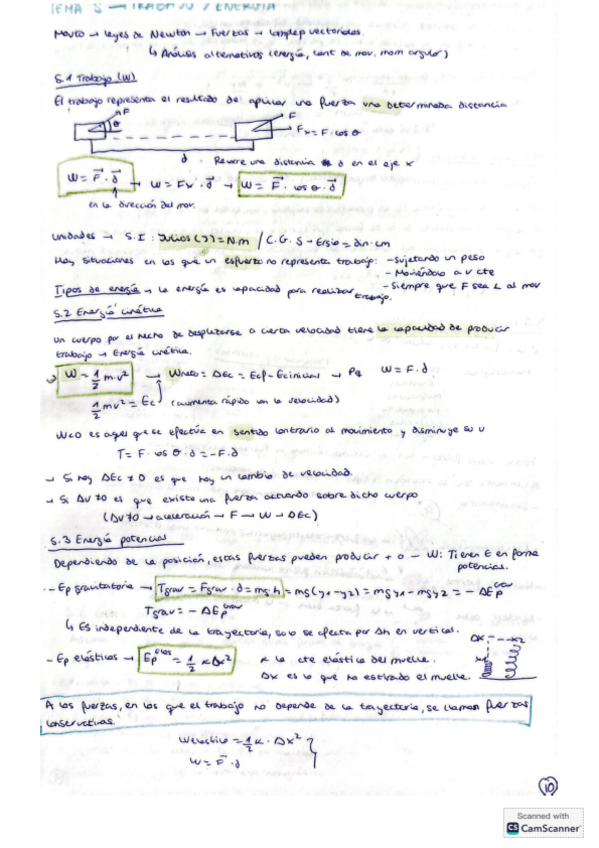 TEMA 5 → TRABAJO Y ENERGÍA
Marco → leyes de Newton → Fuerzas → complejo vectoriales.
↳ Análisis alternativos (energía, cant de mov, mom angular)
5.1 Trabajo (W)
El trabajo representa el resultado de aplicar una fuerza una determinada distancia
F
θ
F
Fx = F cos θ
d
Recorre una distancia d en el eje x
W = F⃗ · d⃗ → W = Fx · d⃗ → W = F⃗ · cos θ · d⃗
en la dirección del mov.
Unidades → S.I : Julios (J) = N.m / C.G.S → Ergio = din·cm
Hay situaciones en los que un esfuerzo no representa trabajo: - Sujetando un peso
- Moviéndolo a v cte
- Siempre que F sea ⊥ al mov
Tipos de energía → la energía es capacidad para realizar trabajo.
5.2 Energía cinética
Un cuerpo por el hecho de desplazarse a cierta velocidad tiene la capacidad de producir
trabajo → Energía cinética.
W = 1/2 m·v² → Wneto = ΔEc = Ecf - Ec inicial → W = F·d.
1/2 mv² = Ec (aumenta rápido con la velocidad)
W<0 es aquel que se efectúa en sentido contrario al movimiento y disminuye su v
T = F · cos θ · d = -F·d
→ Si hay ΔEc ≠ 0 es que hay un cambio de velocidad.
→ Si ΔV ≠ 0 es que existe una fuerza actuando sobre dicho cuerpo
(ΔV ≠ 0 → aceleración → F → W → ΔEc)
5.3 Energía potencial
Dependiendo de la posición, estas fuerzas pueden producir + o - W: Tienen E en forma
potencias.
- Ep gravitatoria → Tgrav = Fgrav · d = mg·h = mg(y1-y2) = mgy1 - mgy2 = - ΔEp grav
Tgrav = - ΔEp grav
↳ Es independiente de la trayectoria, solo se efecta por Δh en vertical.
- Ep elásticos → Ep elas = 1/2 κΔx²
κ la cte elástica del muelle.
Δx es lo que no estirado el muelle.
Δx
x2
x1
A los fuerzas, en los que el trabajo no depende de la trayectoria, se llaman fuerzas
conservativas.
Welástico = 1/2 κ · Δx²
W = F⃗ · d
10
Scanned with
CS CamScanner